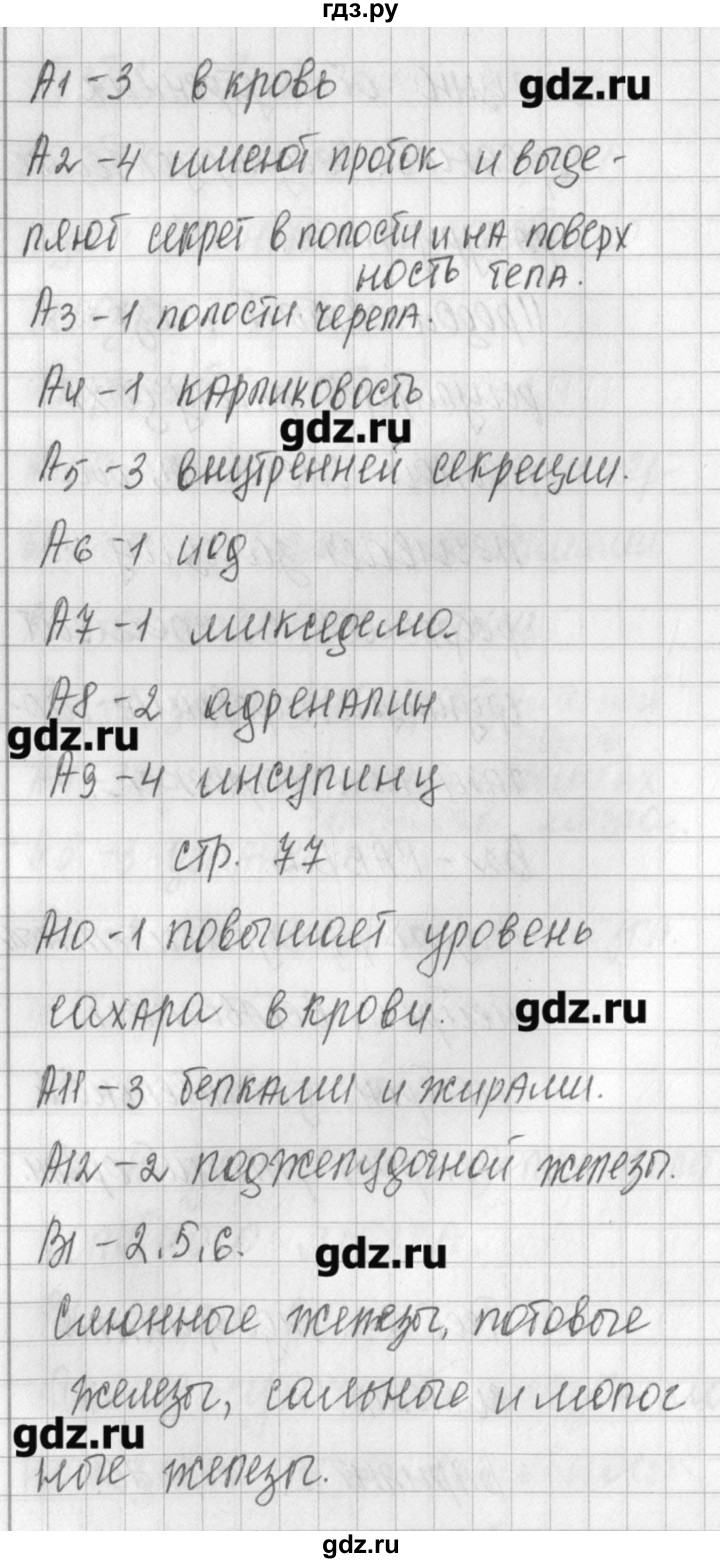 гдз.ру
А1 - 3 в кровь
gdz.ru
А2 - 4 имеют проток и выде-
ляют секрет в полости и на поверх
ность тела.
А3 - 1 полости черепа.
А4 - 1 карликовость
gdz.ru
А5 - 3 внутренней секреции.
А6 - 1 иод
А7 - 1 микседема
А8 - 2 адреналин
gdz.ru
А9 - 4 инсулину
стр. 77
А10 - 1 повышает уровень
сахара в крови.
gdz.ru
А11 - 3 белками и жирами.
А12 - 2 поджелудочной железы.
В1 - 2,5,6.
gdz.ru
Слюнные железы, потовые
железы, сальные и молоч
gdz.ru
ные железы.
gdz.ru